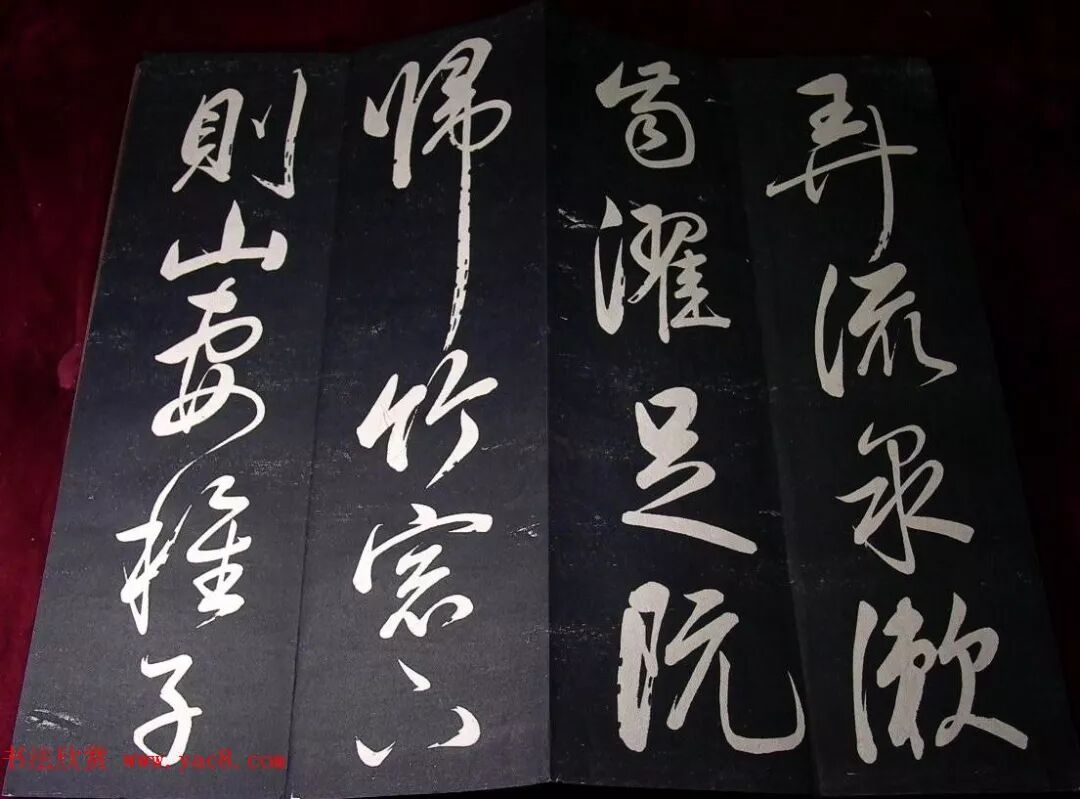 弄流泉漱
齒濯足既
歸竹窓下
則山妻稚子
书法欣赏 www.yac8.com